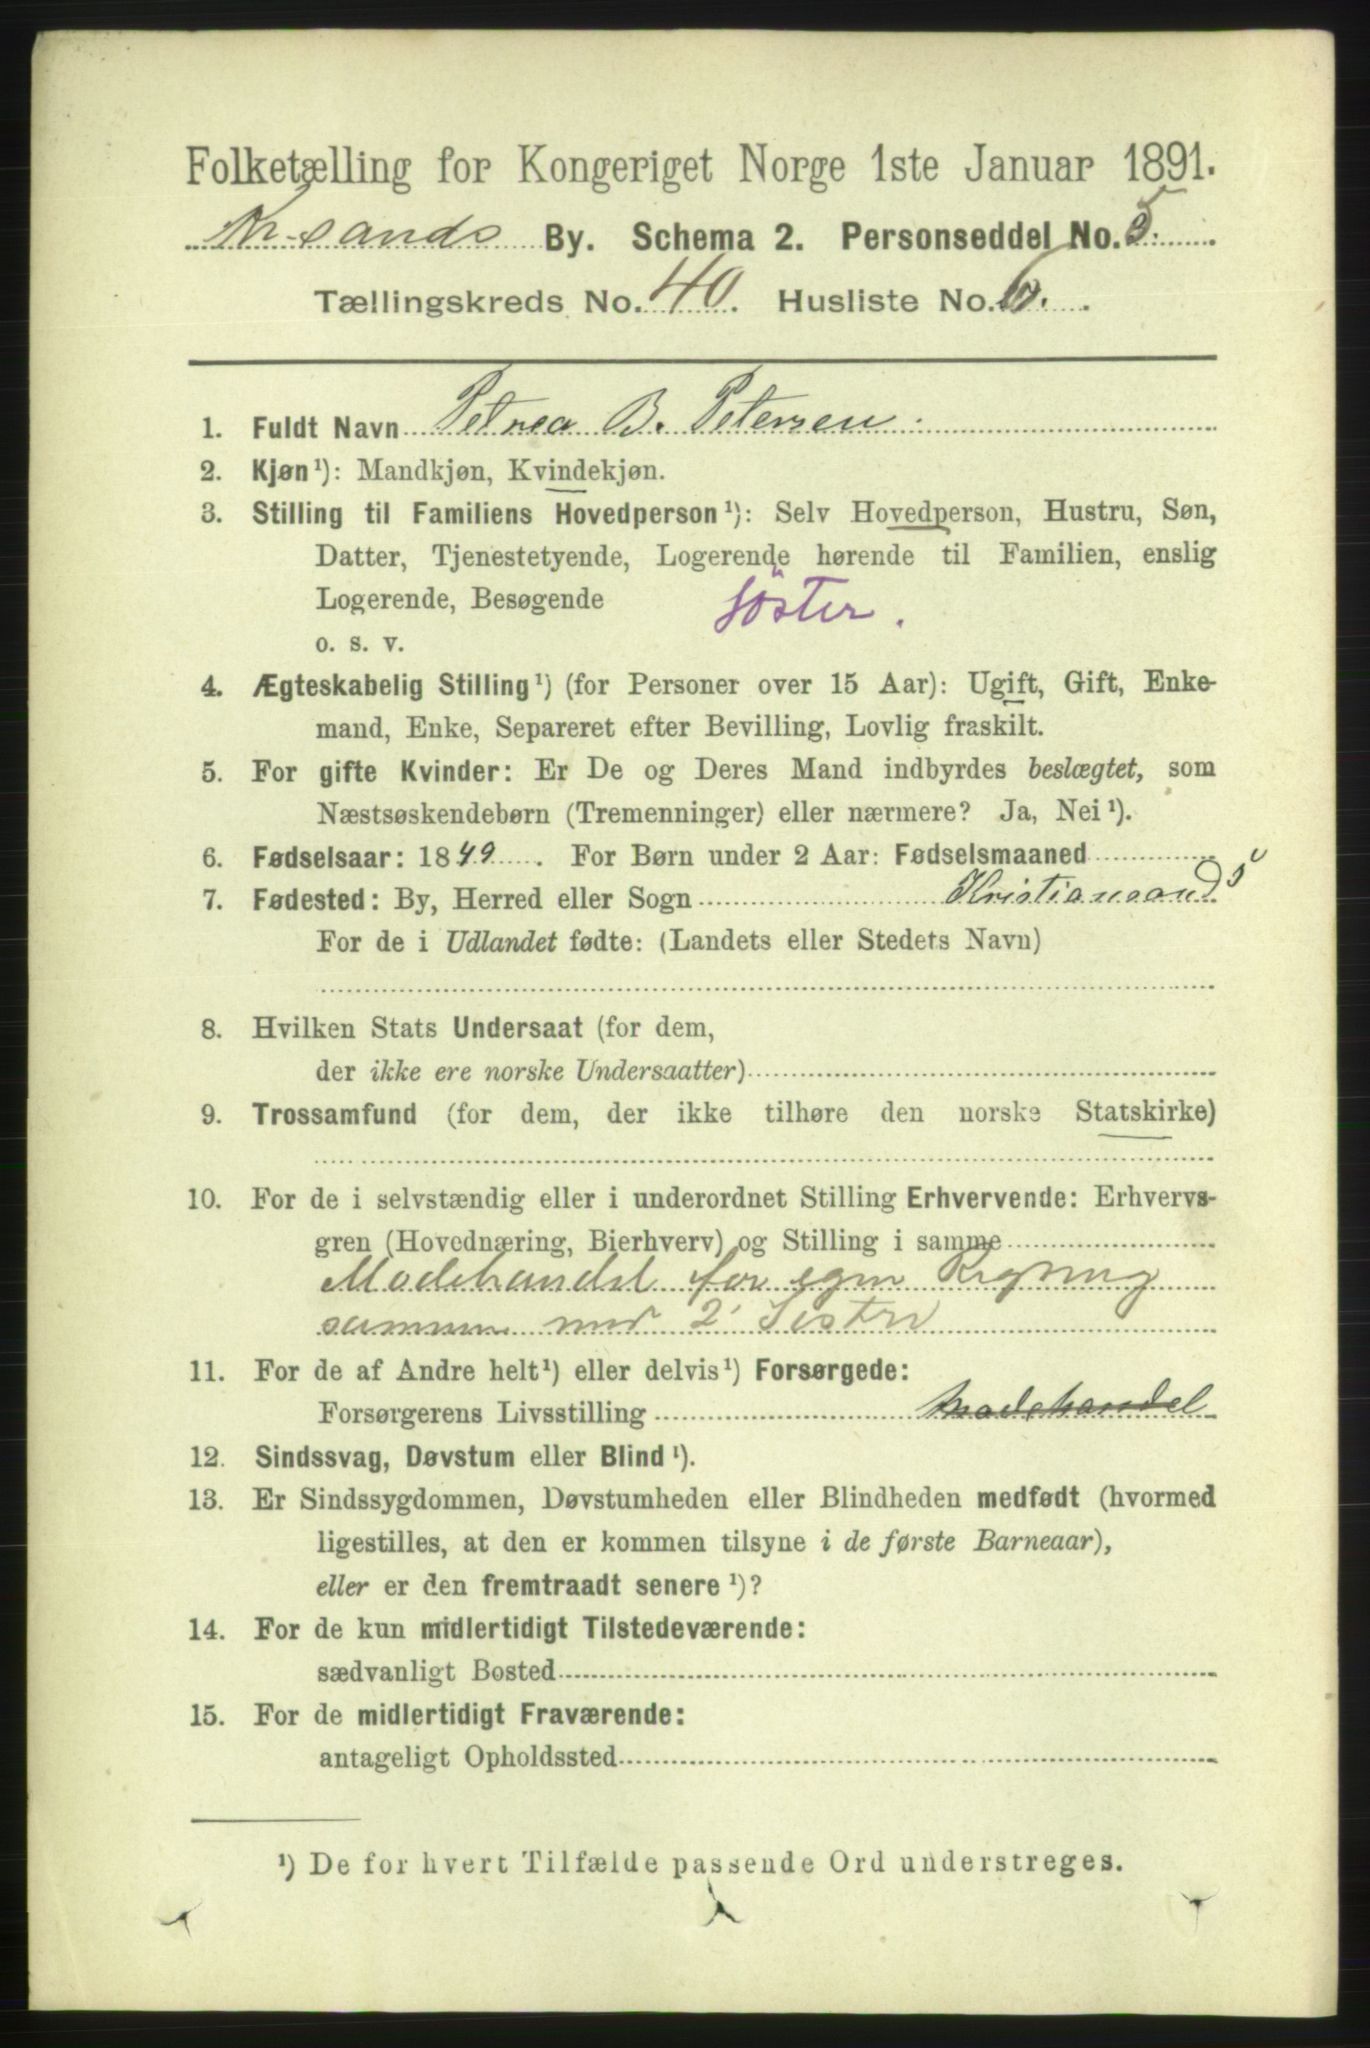 Folketælling for Kongeriget Norge 1ste Januar 1891.
Kr.sands By. Schema 2. Personseddel No. 5.
Tællingskreds No. 40. Husliste No. 6.
1. Fuldt Navn Petrea B. Petersen.
2. Kjøn¹): Mandkjøn, Kvindekjøn.
3. Stilling til Familiens Hovedperson¹): Selv Hovedperson, Hustru, Søn,
Datter, Tjenestetyende, Logerende hørende til Familien, enslig
Logerende, Besøgende
søster.
o. s. v.
4. Ægteskabelig Stilling¹) (for Personer over 15 Aar): Ugift, Gift, Enke-
mand, Enke, Separeret efter Bevilling, Lovlig fraskilt.
5. For gifte Kvinder: Er De og Deres Mand indbyrdes beslægtet, som
Næstsøskendebørn (Tremenninger) eller nærmere? Ja, Nei¹).
6. Fødselsaar: 1849. For Børn under 2 Aar: Fødselsmaaned
7. Fødested: By, Herred eller Sogn Kristianssand 5
For de i Udlandet fødte: (Landets eller Stedets Navn)
8. Hvilken Stats Undersaat (for dem,
der ikke ere norske Undersaatter)
9. Trossamfund (for dem, der ikke tilhøre den norske Statskirke)
10. For de i selvstændig eller i underordnet Stilling Erhvervende: Erhvervs-
gren (Hovednæring, Bierhverv) og Stilling i samme
Modehandel for egen Regning
sammen med 2 Søstre
11. For de af Andre helt¹) eller delvis¹) Forsørgede:
Forsørgerens Livsstilling Modehandel
12. Sindssvag, Døvstum eller Blind¹).
13. Er Sindssygdommen, Døvstumheden eller Blindheden medfødt (hvormed
ligestilles, at den er kommen tilsyne i de første Barneaar),
eller er den fremtraadt senere¹)?
14. For de kun midlertidigt Tilstedeværende:
sædvanligt Bosted
15. For de midlertidigt Fraværende:
antageligt Opholdssted
¹) De for hvert Tilfælde passende Ord understreges.